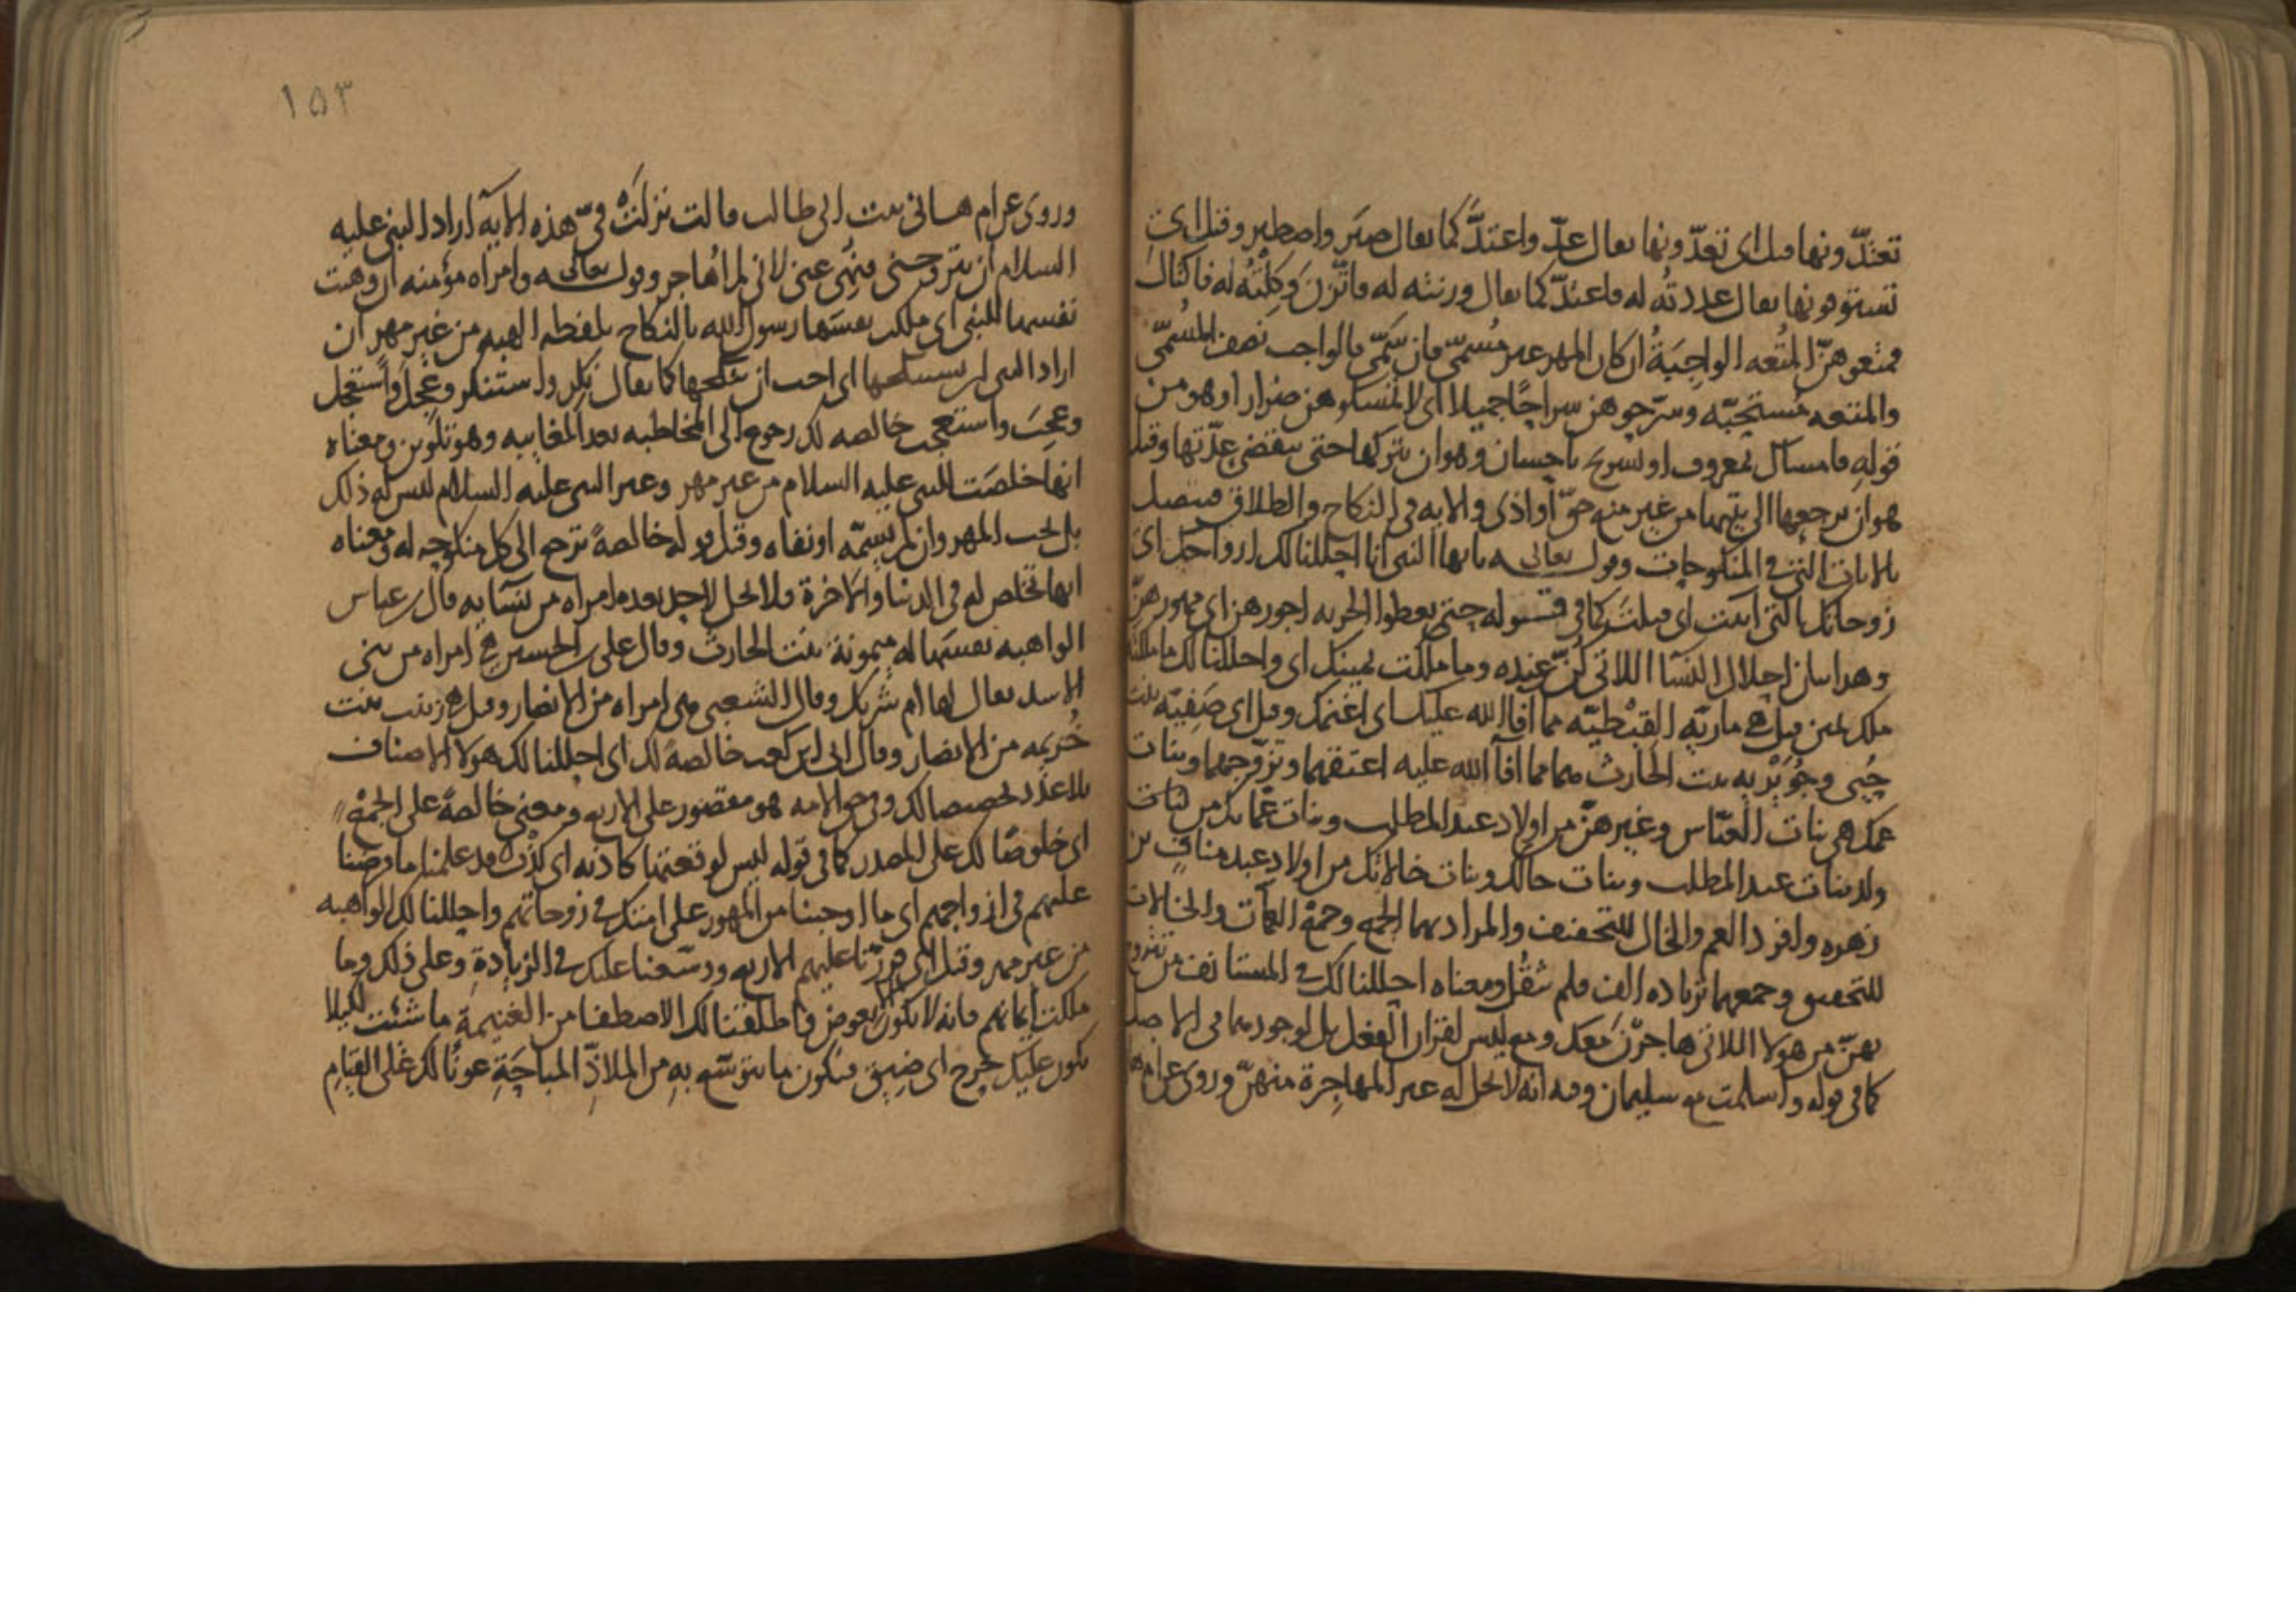 تعتدّونها قيل اى تعدّونها يقال عدّ واعتدّ كما يقال صبر واصطبر وقيل اى
تستوفونها يقال عددته له فاعتدّ كما يقال وزنته له فاتّزن وكلته له فاكتال
فمتعوهنّ المتعه الواجبة ان كان المهر غير مسمىّ فان سمّى فالواجب نصف المسمّى
والمتعه مستحبّه وسرّحوهن سراحًا جميلا اى لا تمسكوهن ضرارا وهو من
قوله فامساك بمعروف او تسريح باحسان وهو ان يتركها حتى ينقضى عدّتها وقيل
هو ان يرجعها الى بيتها من غير منع حقّ او اذى والايه فى النكاح والطلاق فيتصل
بالايات التى فى المنكوحات وقوله تعالى يايها النبى انا احللنا لك ازواجك اى
زوجاتك التى آتيت اى قبلت كما فى قوله حتى يعطوا الجزيه اجورهن اى مهورهنّ
وهذا بيان احلال النسا اللاتى كنّ عنده وما ملكت يمينك اى واحللنا لك ما ملكته
ملك يمين قيل هى ماريّه القبطيّه مما افا الله عليك اى اغنمك وقيل اى صفيّه بنت
حيى وجويريه بنت الحارث هما مما افآ الله عليه اعتقهما وتزوجهما وبنات
عمك هى بنات العبّاس وغيرهنّ من اولاد عبد المطلب وبنات عمّاتك من بنات
ولد بنات عبد المطلب وبنات خالك وبنات خالاتك من اولاد عبد مناف بن
زهره وافرد العم والخال للتخفيف والمراد بهما الجمع وجمع العمّات والخالات
للتحقيق وجمعهما بزياده الف فلم يثقل ومعناه احللنا لك فى المستانف من تتزوج
بهنّ من هولا اللاتى هاجرن معك ومع ليس لقران الفعل بل لوجودهما فى الاصل
كما فى قوله واسلمت مع سليمان وفيه انه لا يحل له غير المهاجرة منهنّ وروى عن ام
١٥٣
وروى عن ام هانى بنت ابى طالب قالت نزلت فىّ هذه الايه اراد النبى عليه
السلام ان يتزوجنى فنهى عنى لانى لم اهاجر وقوله تعالى وامراه مؤمنه ان وهبت
نفسها للنبى اى ملكت نفسها رسول الله بالنكاح بلفظه الهبه من غير مهر ان
اراد النبى ان يستنكحها اى احب ان ينكحها كما يقال نكر واستنكر وعجل واستعجل
وعجب واستعجب خالصه لك رجوع الى المخاطبه بعد المغايبه وهو تلوين ومعناه
انها خلصت للنبى عليه السلام من غير مهر وغير النبى عليه السلام ليس له ذلك
بل يجب المهر وان لم يسمّه او نفاه وقيل قوله خالصةً ترجع الى كل منكوحه له ومعناه
انها تخلص له فى الدنيا والاخرة فلا تحل لاحد بعده امراه من نسآيه قال ابن عباس
الواهبه نفسها له ميمونة بنت الحارث وقال على بن الحسين هى امراه من بنى
الاسد يقال لها ام شريك وقال الشعبى هى امراه من الانصار وقيل هى زينب بنت
خزيمه من الانصار وقال ابى ابن كعب خالصة لك اى احللنا لك هولا الاصناف
بلا عدد تخصيصا لك وفى حق الامه هو مقصور على الاربع ومعنى خالصةً على الجمع
اى خلوصًا لك على المصدر كما فى قوله ليس لوقعتها كاذبه اى كذب قد علمنا ما فرضنا
عليهم فى ازواجهم اى ما اوجبنا من المهور على امتك فى زوجاتهم واحللنا لك الواهبه
من غير مهر وقيل اى قررنا عليهم الاربع ووسّعنا عليك فى الزيادة وعلى ذلك وما
ملكت ايمانهم فانه لا يكون الا بعوض فاطلقنا لك الاصطفا من الغنيمة ما شئت لكيلا
يكون عليك حرج اى ضيق فيكون ما يتوسّع به من الملاذّ المباحة عونًا لك على القيام